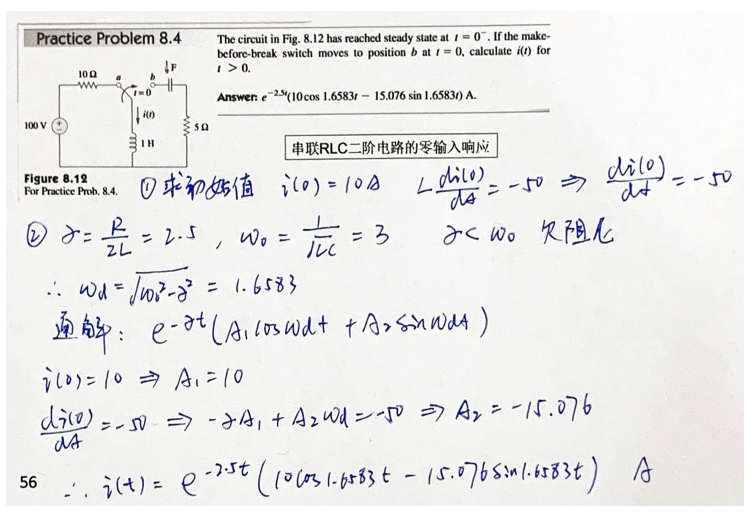 Practice Problem 8.4
The circuit in Fig. 8.12 has reached steady state at t = 0⁻. If the make-
before-break switch moves to position b at t = 0, calculate i(t) for
t > 0.
Answer: e^{-2.5t}(10 cos 1.6583t − 15.076 sin 1.6583t) A.
10 Ω
a
b
1/9 F
t=0
i(t)
100 V
1 H
5 Ω
Figure 8.12
For Practice Prob. 8.4.
串联RLC二阶电路的零输入响应
① 求初始值 i(0) = 10A L di(0)/dt = -50 ⇒ di(0)/dt = -50
② α = R/2L = 2.5 , ω₀ = 1/√LC = 3 α < ω₀ 欠阻尼
∴ ωd = √(ω₀²-α²) = 1.6583
通解: e^{-αt}(A₁cosωdt + A₂sinωdt)
i(0) = 10 ⇒ A₁ = 10
di(0)/dt = -50 ⇒ -αA₁ + A₂ωd = -50 ⇒ A₂ = -15.076
56
∴ i(t) = e^{-2.5t}(10cos1.6583t - 15.076sin1.6583t) A